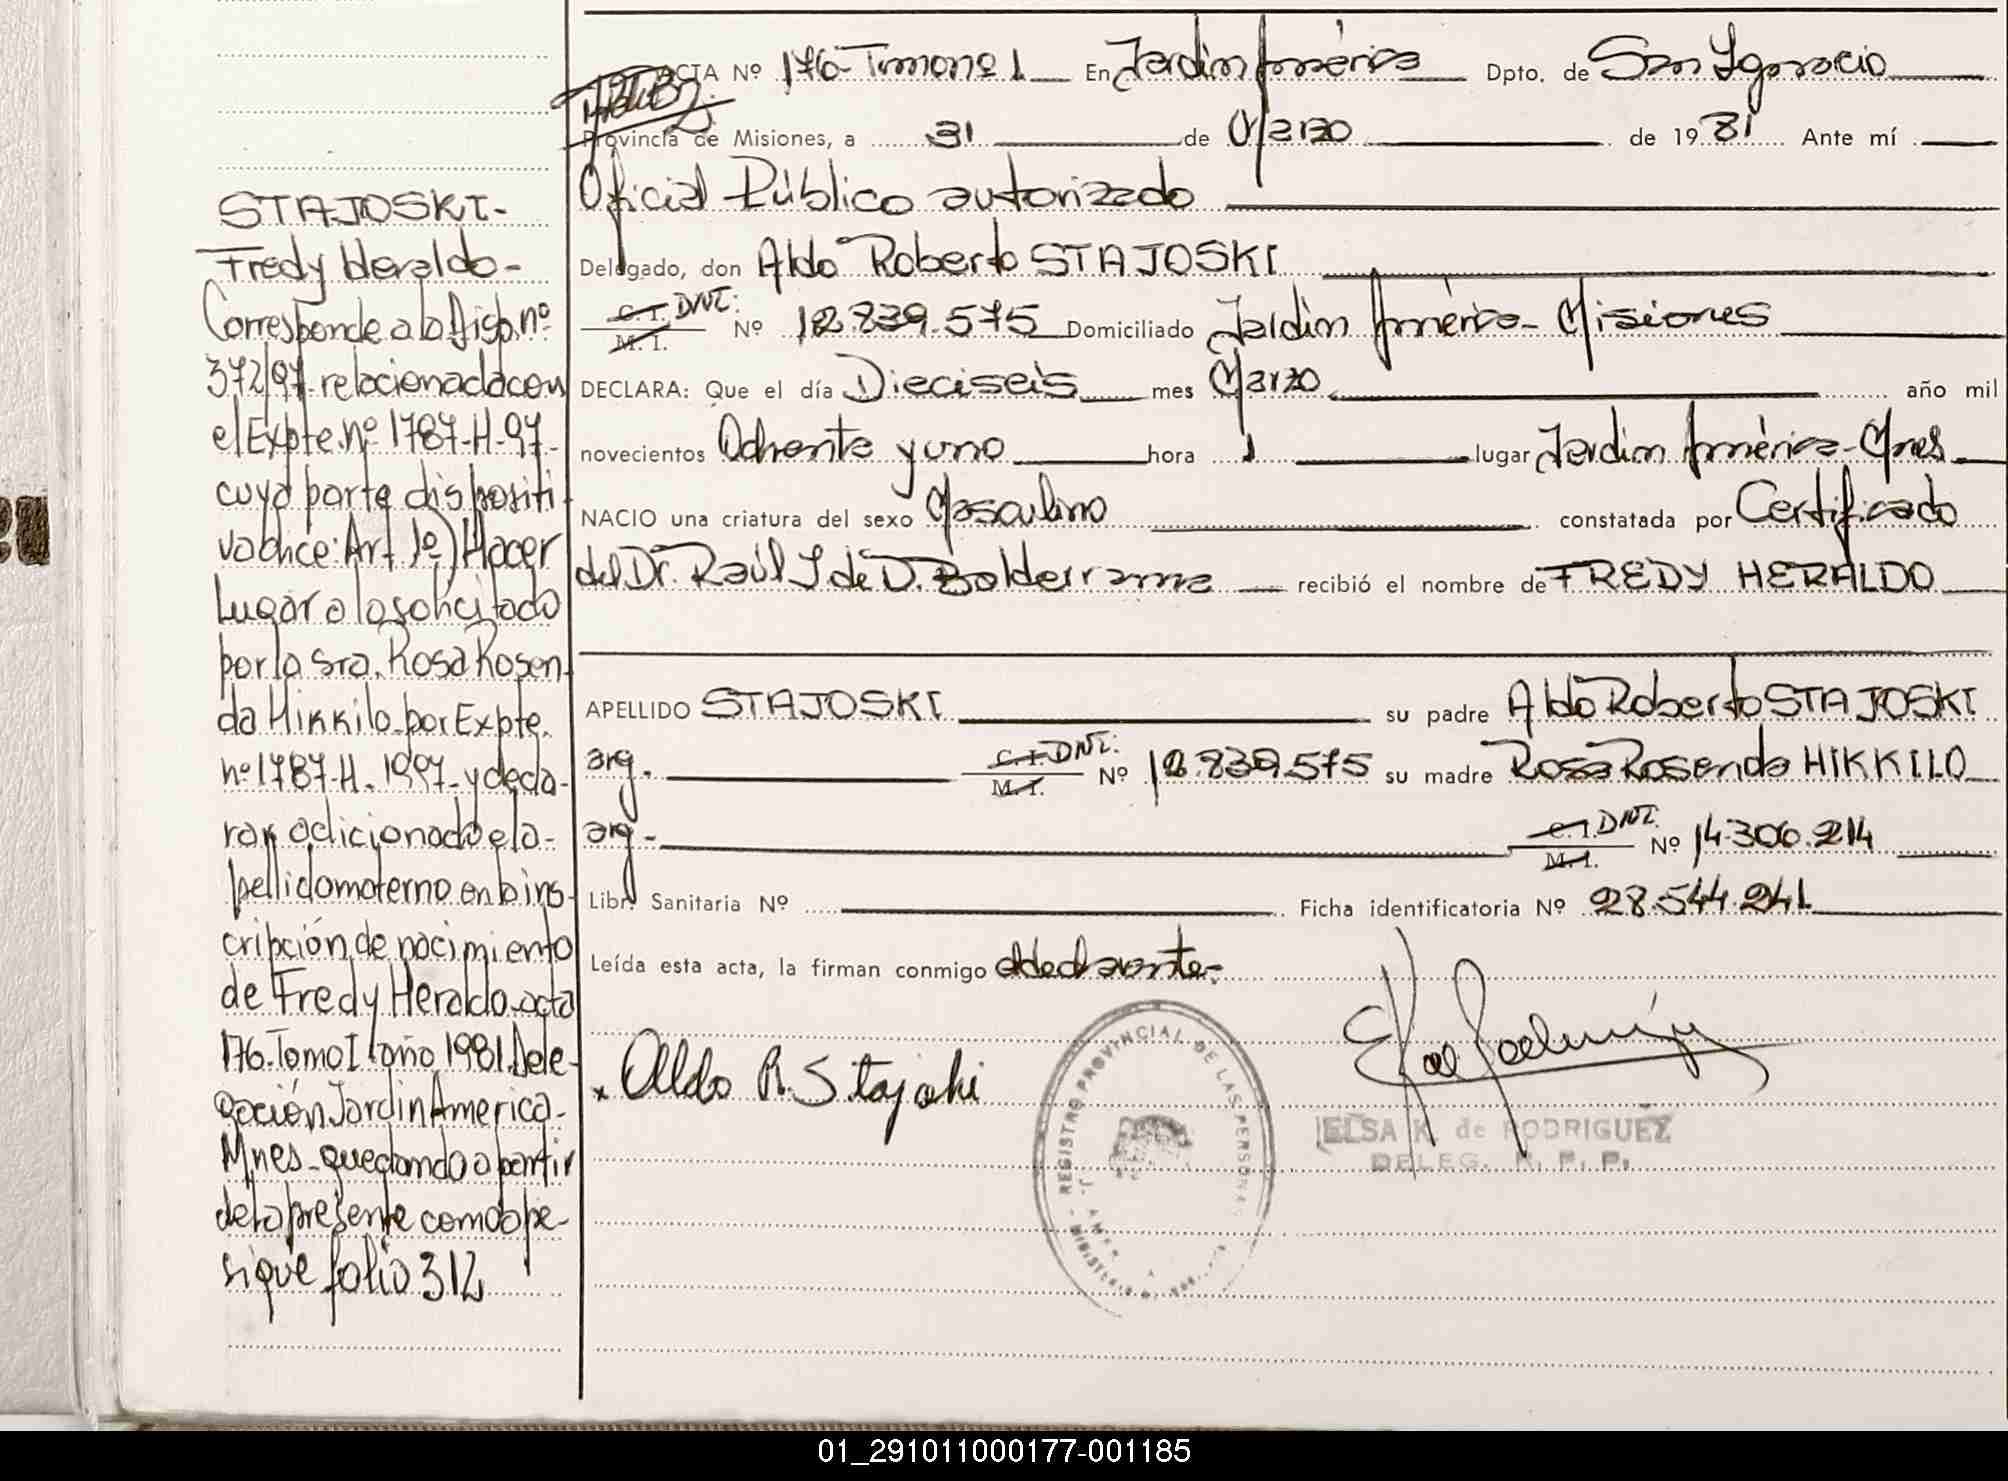 STAJOSKI-
Fredy Heraldo-
Corresponde a la Disp. nº
372/97 relacionada con
el Expte. nº 1787-H-97-
cuya parte dispositi-
va dice: Art. 1º) Hacer
Lugar a lo solicitado
por la Sra. Rosa Rosen-
da Hikkilo por Expte.
nº 1787-H. 1997- y decla-
rar adicionado el a-
pellido materno en la ins-
cripción de nacimiento
de Fredy Heraldo-acta
176. Tomo I año 1981. Dele-
gación Jardin America-
Mnes- quedando a partir
de la presente como ape-
sigue folio 312
ACTA Nº 176- Tomo nº 1 En Jardín América Dpto. de San Ignacio
Provincia de Misiones, a 31 de Marzo de 1981 Ante mí
Oficial Público autorizado
Delegado, don Aldo Roberto STAJOSKI
C. I. DNI: M. I. Nº 12.839.575 Domiciliado Jardín América- Misiones
DECLARA: Que el día Dieciseis mes Marzo año mil
novecientos Ochenta y uno hora 1 lugar Jardín América-Mnes
NACIO una criatura del sexo Masculino constatada por Certificado
del Dr. Raúl J. de D. Balderrama recibió el nombre de FREDY HERALDO
APELLIDO STAJOSKI su padre Aldo Roberto STAJOSKI
arg. C. I. DNI: M. I. Nº 12.839.575 su madre Rosa Rosenda HIKKILO
arg- C. I. DNI. M. I. Nº 14.306.214
Libr. Sanitaria Nº Ficha identificatoria Nº 28.544.241
Leída esta acta, la firman conmigo el declarante-
x Aldo R. Stajoski
REGISTRO PROVINCIAL DE LAS PERSONAS
ELSA K. de RODRIGUEZ
DELEG. R. P. P.
01_291011000177-001185